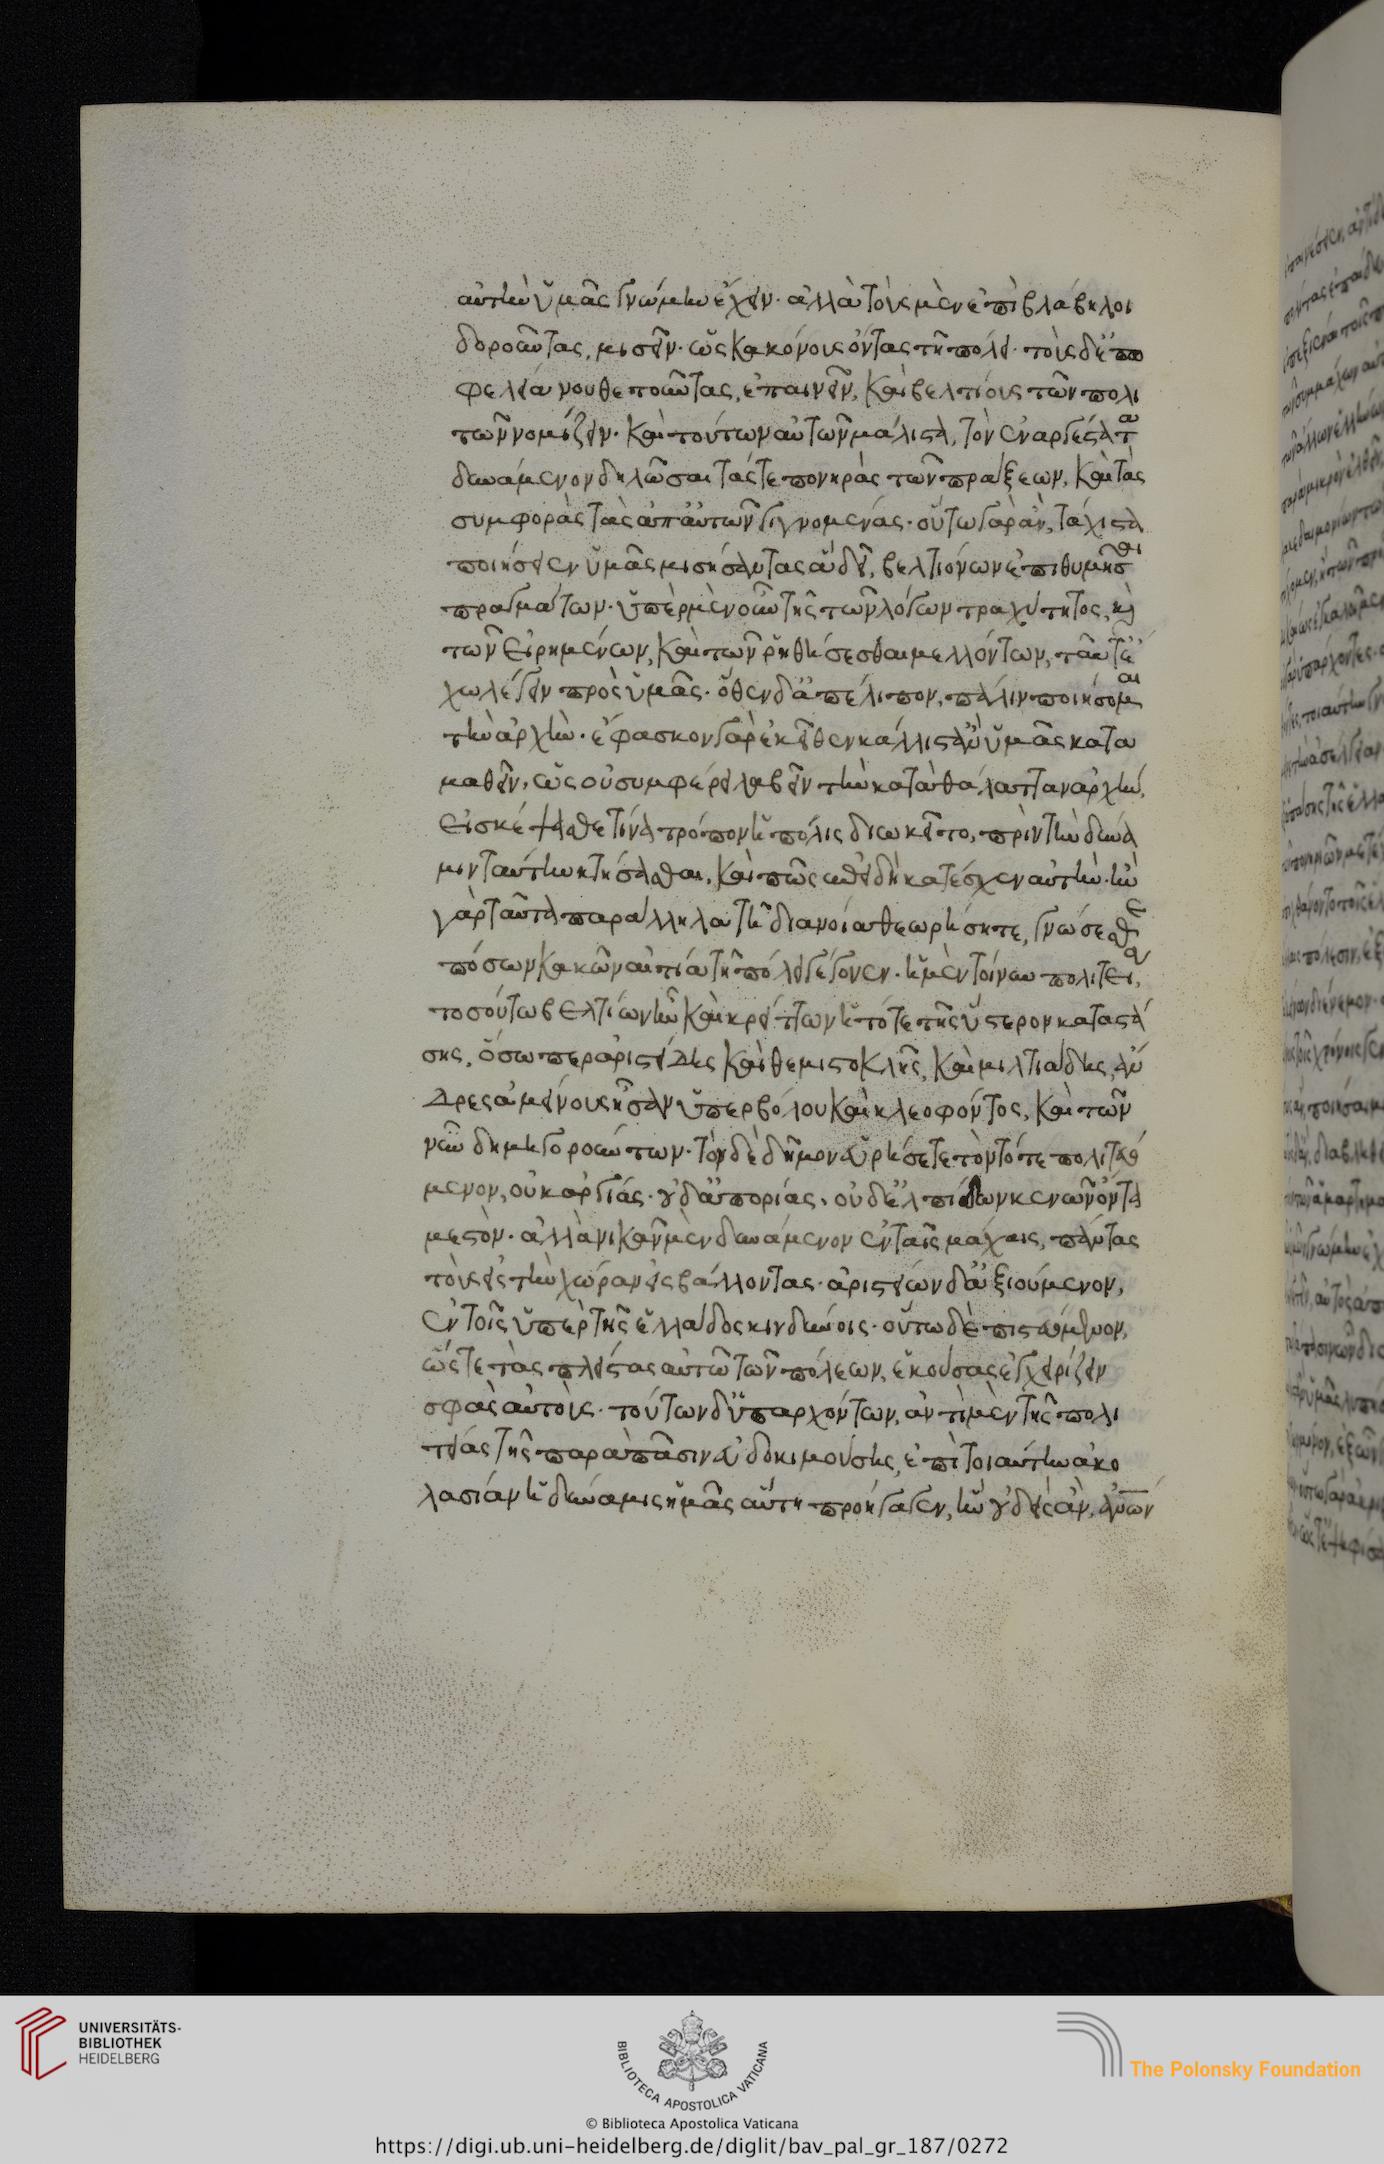 αὐτὴν ὑμᾶς γνώμην ἔχειν· ἀλλὰ τοὺς μὲν ἐπὶ βλάβῃ λοι
δοροῦντας, μισεῖν· ὡς κακόνους ὄντας τῇ πόλει· τοὺς δ' ἐπ' ὠ
φελείᾳ νουθετοῦντας, ἐπαινεῖν, καὶ βελτίους τῶν πολι
τῶν νομίζειν· καὶ τούτων αὐτῶν μάλιστα, τὸν ἐναργέστατα
δυνάμενον δηλῶσαι τάς τε πονηρὰς τῶν πράξεων, καὶ τὰς
συμφορὰς τὰς ἀπ' αὐτῶν γιγνομένας· οὕτω γὰρ ἂν, τάχιστα
ποιήσειεν ὑμᾶς μισήσαντας ἃ δεῖ, βελτιόνων ἐπιθυμῆσαι
πραγμάτων· ὑπὲρ μὲν οὖν τῆς τῶν λόγων τραχύτητος, καὶ
τῶν εἰρημένων, καὶ τῶν ῥηθήσεσθαι μελλόντων, ταῦτ' ἔ
χω λέγειν πρὸς ὑμᾶς· ὅθεν δ' ἀπέλιπον, πάλιν ποιήσομαι
τὴν ἀρχὴν· ἔφασκον γὰρ ἐκεῖθεν κάλλιστ' ἂν ὑμᾶς κατα
μαθεῖν, ὡς οὐ συμφέρει λαβεῖν τὴν κατὰ θάλατταν ἀρχήν,
εἰ σκέψαισθε τίνα τρόπον ἡ πόλις διῳκεῖτο, πρὶν τὴν δύνα
μιν ταύτην κτήσασθαι, καὶ πῶς ἐπειδὴ κατέσχεν αὐτὴν· ἢν
γὰρ ταῦτα παράλληλα τῇ διανοίᾳ θεωρήσητε, γνώσεσθε
πόσων κακῶν αἰτία τῇ πόλει γέγονεν· ἡ μὲν τοίνυν πολιτεία,
τοσούτῳ βελτίων ἦν καὶ κρείττων ἡ τότε τῆς ὕστερον καταστά
σης, ὅσῳ περ ἀριστείδης καὶ θεμιστοκλῆς, καὶ μιλτιάδης, ἄν
δρες ἀμείνους ἦσαν ὑπερβόλου καὶ κλεοφόντος, καὶ τῶν
νῦν δημηγορούντων· τὸν δὲ δῆμον εὑρήσετε τὸν τότε πολιτευό
μενον, οὐκ ἀργίας· οὐδ' ἀπορίας, οὐδ' ἐλπίδων κενῶν ὄντα
μεστὸν· ἀλλὰ νικᾶν μὲν δυνάμενον ἐν ταῖς μάχαις, πάντας
τοὺς εἰς τὴν χώραν εἰσβάλλοντας· ἀριστείων δ' ἀξιούμενον,
ἐν τοῖς ὑπὲρ τῆς ἑλλάδος κινδύνοις· οὕτω δὲ πιστευόμενον,
ὥστε τὰς πλείστας αὐτῷ τῶν πόλεων, ἑκούσας ἐγχειρίζειν
σφὰς αὐτὰς· τούτων δ' ὑπαρχόντων, ἀντὶ μὲν τῆς πολι
τείας τῆς παρὰ πᾶσιν εὐδοκιμούσης, ἐπὶ τοιαύτην ἀκο
λασίαν ἡ δύναμις ἡμᾶς αὕτη προήγαγεν, ἣν οὐδεὶς ἂν, ἀνθρώπων
UNIVERSITÄTS-
BIBLIOTHEK
HEIDELBERG
BIBLIOTECA APOSTOLICA VATICANA
The Polonsky Foundation
© Biblioteca Apostolica Vaticana
https://digi.ub.uni-heidelberg.de/diglit/bav_pal_gr_187/0272